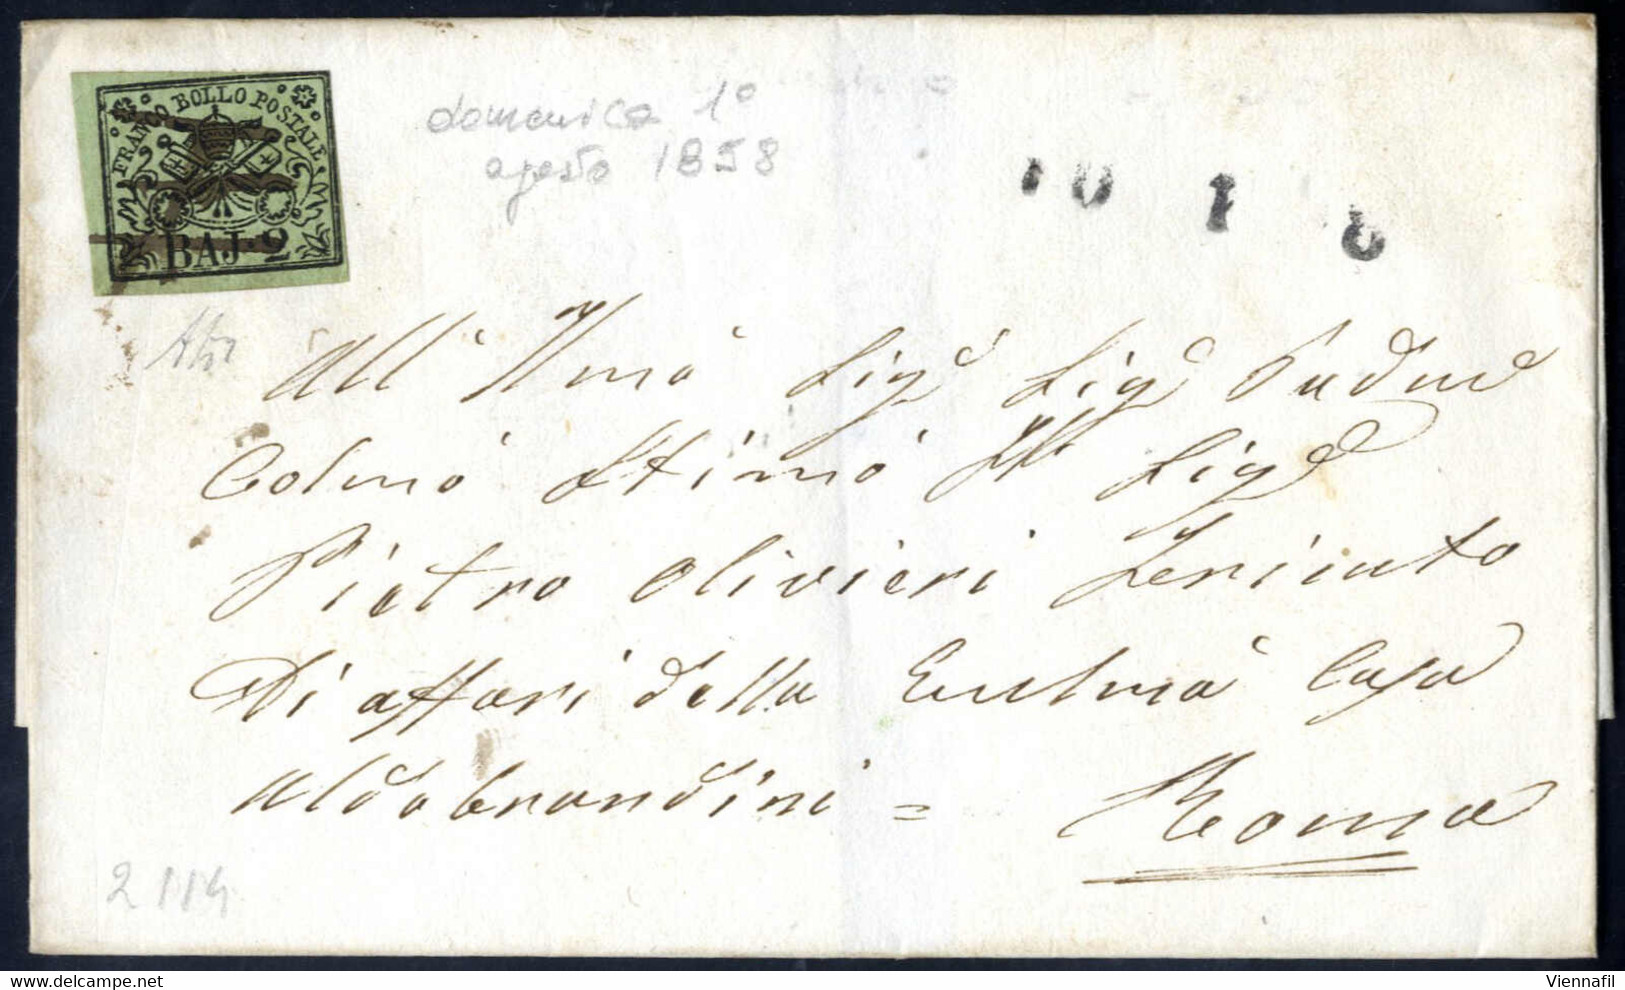 FRANCO BOLLO POSTALE
BAJ. 2
domenica 1º
agosto 1858
All' Illmo Sigre Sigre Padrne
Colmo Stimo Il Sigre
Pietro Olivieri
Di affari della Eccllma Casa
Aldobrandini =
Roma
2114
delcampe.net
Viennafil